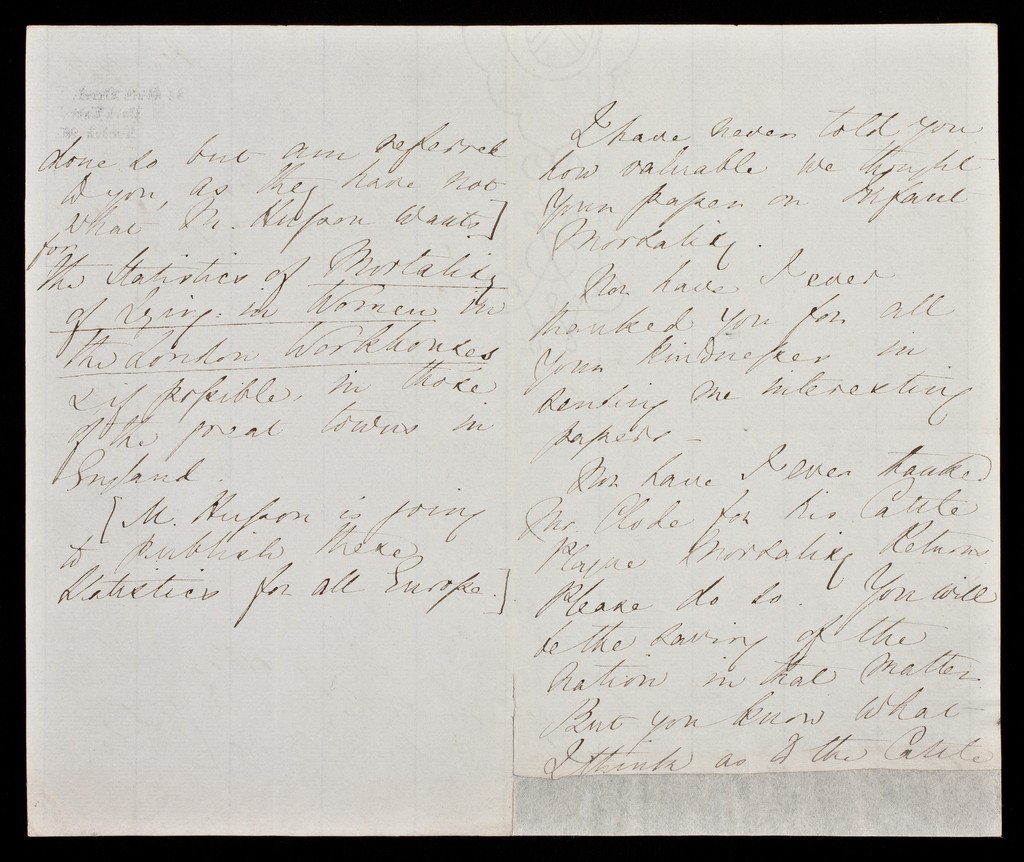 done so but am referred
to you, as they have not
what M. Husson wants]
for
the Statistics of Mortality
of Lying-in Women in
the London Workhouses
& if possible, in those
of the great towns in
England.
[M. Husson is going
to publish these
Statistics for all Europe.]
I have never told you
how valuable we thought
your paper on Infant
Mortality.
Nor have I ever
thanked you for all
your kindnesses in
sending me interesting
papers -
Nor have I ever thanked
Mr. Clode for his Cattle
Plague Mortality Returns
Please do so. You will
be the saving of the
nation in that matter.
But you know what
I think as to the Cattle